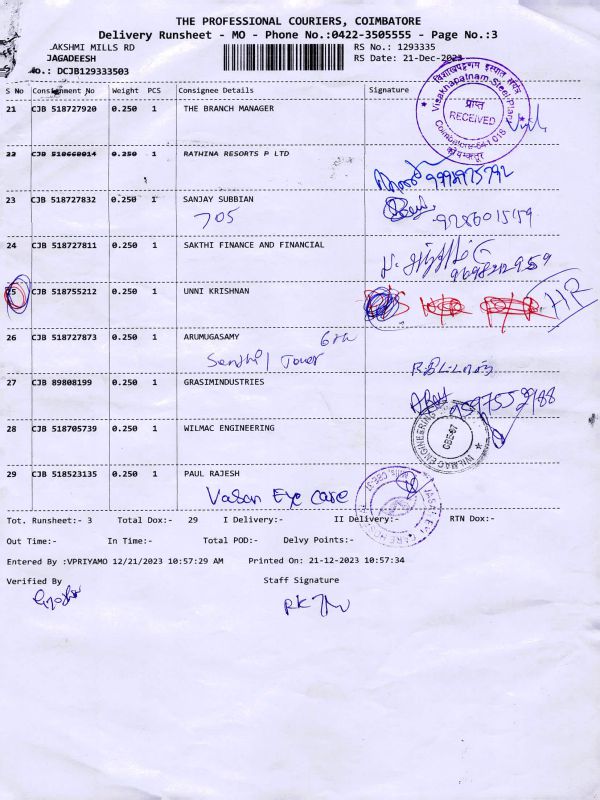 THE PROFESSIONAL COURIERS, COIMBATORE
Delivery Runsheet - MO - Phone No.:0422-3505555 - Page No.:3
LAKSHMI MILLS RD
RS No.: 1293335
JAGADEESH
RS Date: 21-Dec-2023
No.: DCJB129333503
S No Consignment No Weight PCS Consignee Details Signature
21 CJB 518727920 0.250 1 THE BRANCH MANAGER
विशाखपट्टणम इस्पात संयंत्र
Visakhapatnam Steel Plant
प्राप्त
RECEIVED
Coimbatore-641 018
कोयम्बत्तूर
22 CJB 510660014 0.250 1 RATHINA RESORTS P LTD
23 CJB 518727832 0.250 1 SANJAY SUBBIAN
705
9286015159
24 CJB 518727811 0.250 1 SAKTHI FINANCE AND FINANCIAL
25 CJB 518755212 0.250 1 UNNI KRISHNAN
HR
26 CJB 518727873 0.250 1 ARUMUGASAMY
Senthil Tower
27 CJB 89808199 0.250 1 GRASIMINDUSTRIES
28 CJB 518705739 0.250 1 WILMAC ENGINEERING
WILMAC ENGINEERING
29 CJB 518523135 0.250 1 PAUL RAJESH
Vasan Eye Care
Tot. Runsheet:- 3 Total Dox:- 29 I Delivery:- II Delivery:- RTN Dox:-
Out Time:- In Time:- Total POD:- Delvy Points:-
Entered By :VPRIYAMO 12/21/2023 10:57:29 AM Printed On: 21-12-2023 10:57:34
Verified By Staff Signature